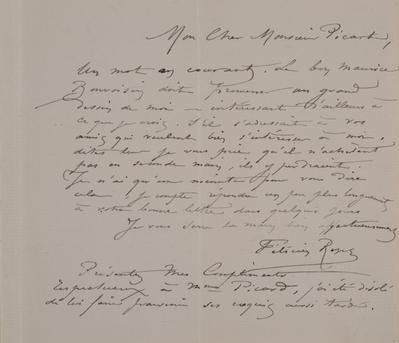 Mon Cher Monsieur Picard,
Un mot en courant. Le bon Maurice
Bonvoisin doit promener un grand
dessin de moi – intéressant d'ailleurs à
ce que je crois. S'il s'adressait à vos
amis qui veulent bien s'intéresser à moi,
dites leur je vous prie qu'il n'achètent
pas en seconde main, ils y perdraient.
Je n'ai qu'un minute pour vous dire
cela. Je compte répondre un peu plus longuement
à votre bonne lettre dans quelques jours
Je vous serre la main bien affectueusement
Félicien Rops
Présentez mes Compliments
respectueux à Mme Picard, j'ai été désolé
de lui faire parvenir ses croquis aussi tard.